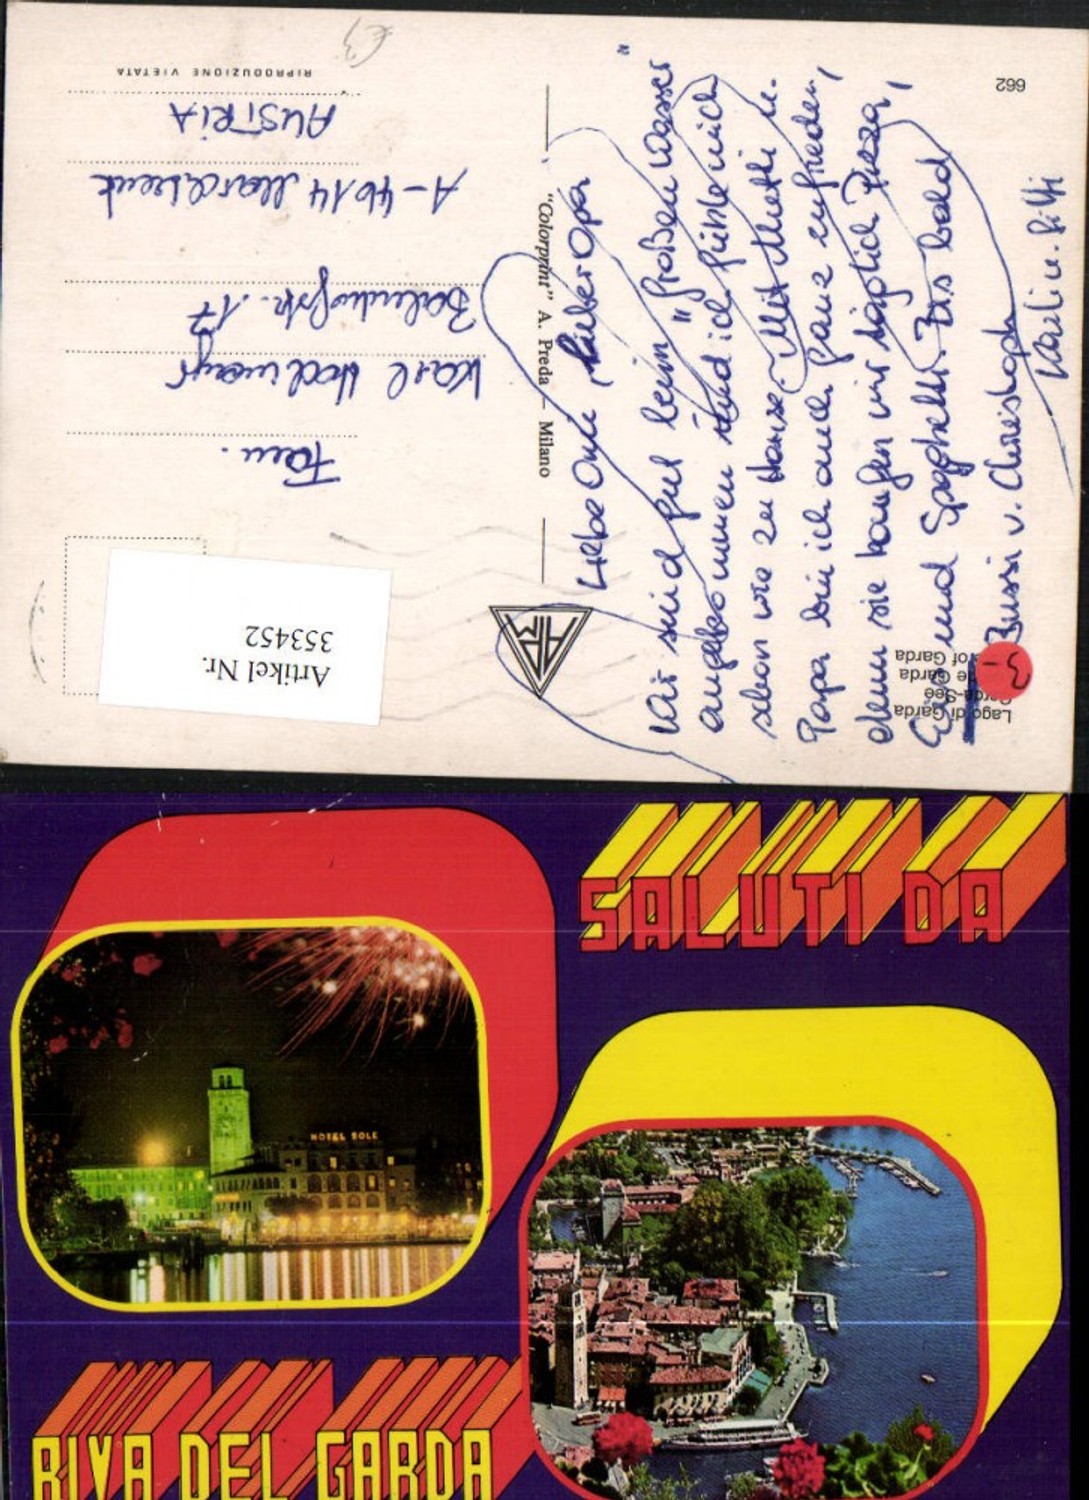 662
Lago di Garda
Garda-See
of Garda
3-
Liebe Omi, lieber Opa
Wir sind gut beim "großen Wasser"
angekommen und ich fühle mich
schon wie zu Hause. Mit Mutti u.
Papa bin ich auch ganz zufrieden,
denn sie kaufen mir täglich Pizza,
Eis und Spaghetti. Bis bald
Bussi v. Christoph
"Colorprint" A. Preda - Milano
Artikel Nr.
353452
Fam.
Karl
17
A-4614 Marchtrenk
AUSTRIA
RIPRODUZIONE VIETATA
€3
SALUTI DA
HOTEL SOLE
RIVA DEL GARDA